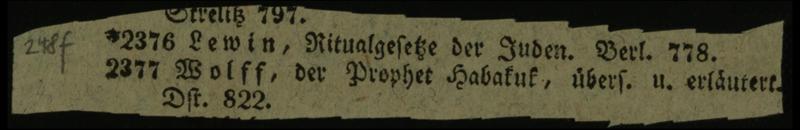 Strelitz 797.
248f
*2376 Lewin, Ritualgesetze der Juden. Berl. 778.
2377 Wolff, der Prophet Habakuk, übers. u. erläutert.
Dst. 822.